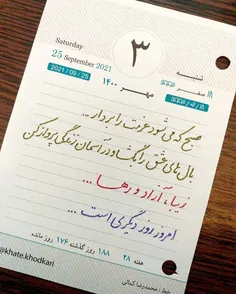 Saturday
25 September 2021
2021 / 09 / 25
۳
شنبه
مهر ۱۴۰۰
صفر
صبح که می شود عزمت را بردار...
بال های عشق را بگشا و در آسمان زندگی پرواز کن
زیبا، آزاد و رها...
امروز روز دیگری است...
هفته ۲۸ ۱۸۸ روز گذشته ۱۷۶ روز مانده
@khate.khodkari
خط: محمدرضا کمالی